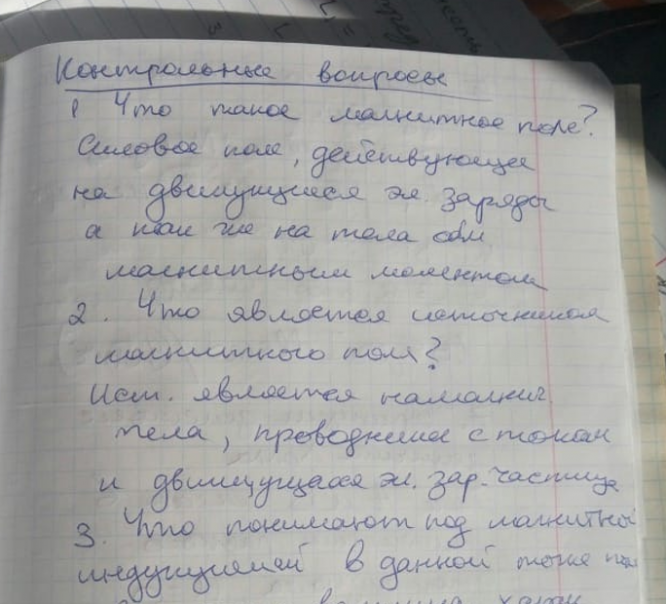 Контрольные вопросы
1 Что такое магнитное поле?
Силовое поле, действующее
на движущиеся эл. заряды
а так же на тела обл.
магнитным моментом
2. Что является источником
магнитного поля?
Ист. является намагнич.
тела, проводники с током
и движущаяся эл. зар. частица
3. Что понимают под магнитной
индукцией в данной точке